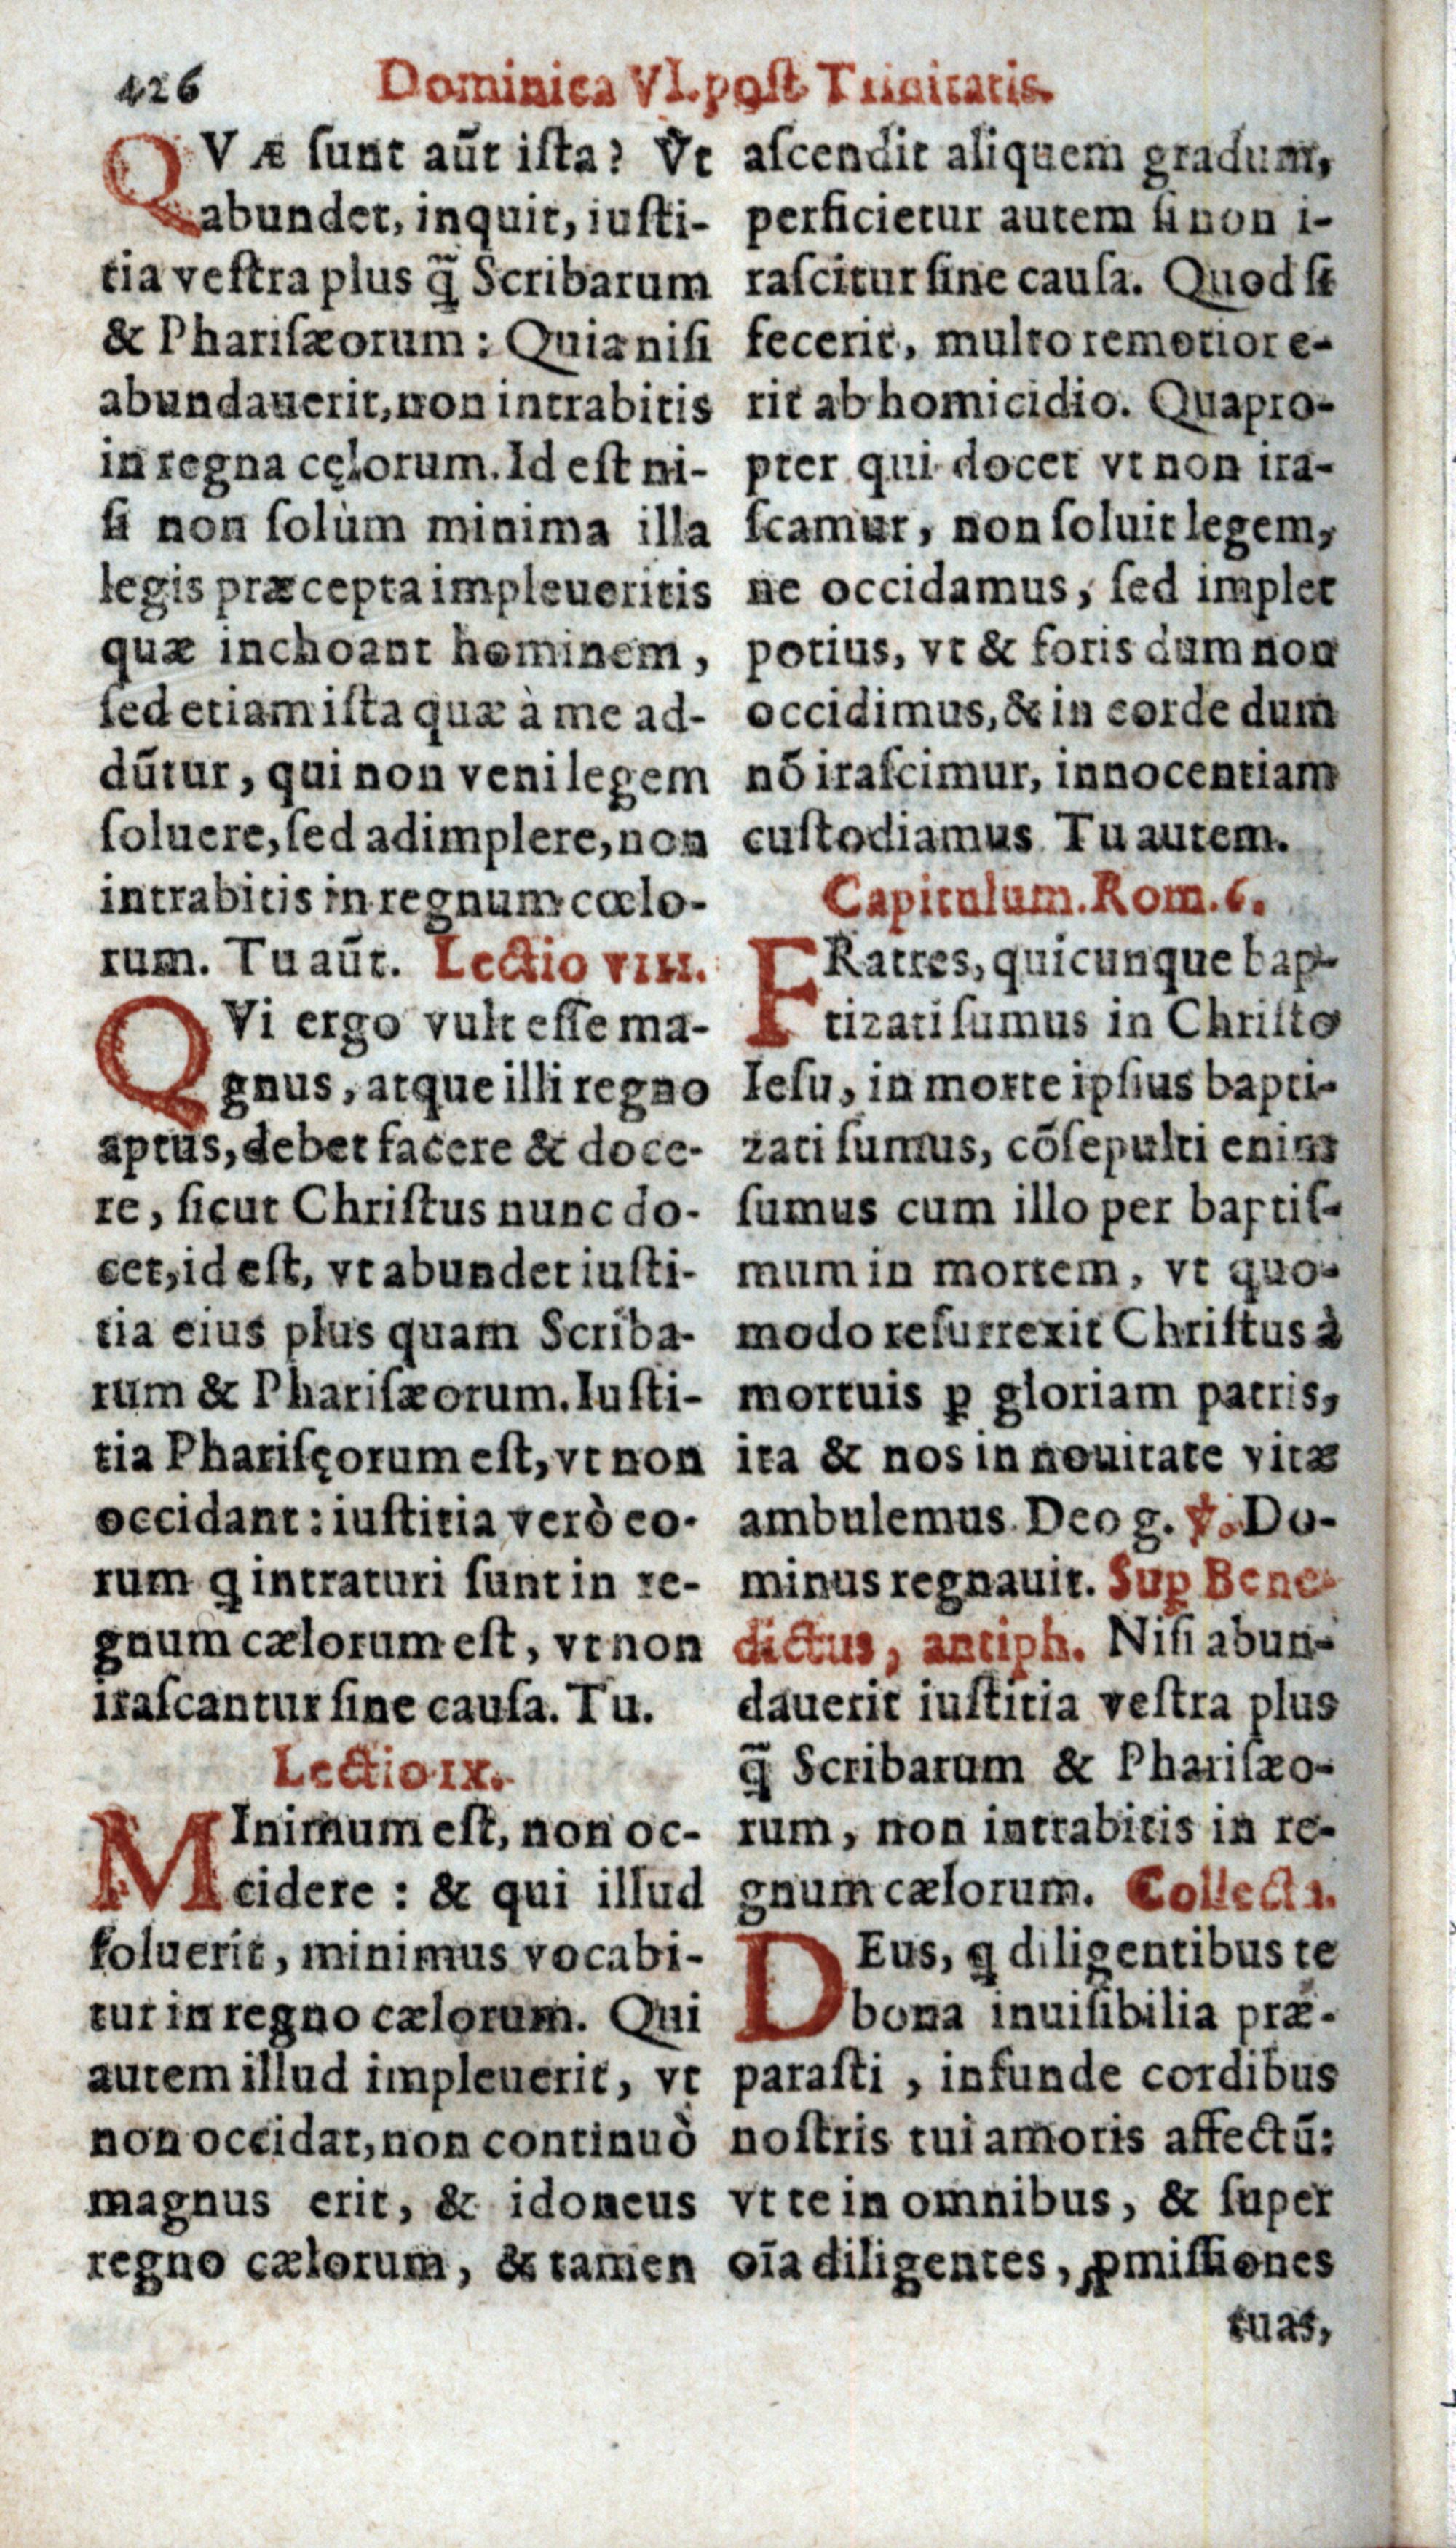 426 Dominica VI. post Trinitatis.
QVÆ sunt aũt ista? Vt
abundet, inquit, iusti-
tia vestra plus q̃ Scribarum
& Pharisæorum: Quia nisi
abundauerit, non intrabitis
in regna cęlorum. Id est ni-
si non solùm minima illa
legis præcepta impleueritis
quæ inchoant hominem,
sed etiam ista quæ à me ad-
dũtur, qui non veni legem
soluere, sed adimplere, non
intrabitis in regnum cœlo-
rum. Tu aũt. Lectio VIII.
QVi ergo vult esse ma-
gnus, atque illi regno
aptus, debet facere & doce-
re, sicut Christus nunc do-
cet, id est, vt abundet iusti-
tia eius plus quam Scriba-
rum & Pharisæorum. Iusti-
tia Pharisęorum est, vt non
occidant: iustitia verò eo-
rum ꝗ intraturi sunt in re-
gnum cælorum est, vt non
irascantur sine causa. Tu.
Lectio IX.
MInimum est, non oc-
cidere: & qui illud
soluerit, minimus vocabi-
tur in regno cælorum. Qui
autem illud impleuerit, vt
non occidat, non continuò
magnus erit, & idoneus
regno cælorum, & tamen
ascendit aliquem gradum,
perficietur autem si non i-
rascitur sine causa. Quod si
fecerit, multo remotior e-
rit ab homicidio. Quapro-
pter qui docet vt non ira-
scamur, non soluit legem,
ne occidamus, sed implet
potius, vt & foris dum non
occidimus, & in corde dum
nõ irascimur, innocentiam
custodiamus. Tu autem.
Capitulum. Rom. 6.
FRatres, quicunque bap-
tizati sumus in Christo
Iesu, in morte ipsius bapti-
zati sumus, cõsepulti enim
sumus cum illo per baptis-
mum in mortem, vt quo-
modo resurrexit Christus à
mortuis ꝑ gloriam patris,
ita & nos in nouitate vitæ
ambulemus. Deo g. ℣. Do-
minus regnauit. Suꝑ Bene-
dictus, antiph. Nisi abun-
dauerit iustitia vestra plus
q̃ Scribarum & Pharisæo-
rum, non intrabitis in re-
gnum cælorum. Collecta.
DEus, ꝗ diligentibus te
bona inuisibilia præ-
parasti, infunde cordibus
nostris tui amoris affectũ:
vt te in omnibus, & super
oĩa diligentes, ꝓmissiones
tuas,